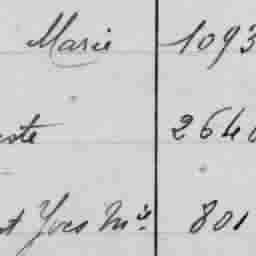 Marie 1093
este 2640
st Yves Mie 801